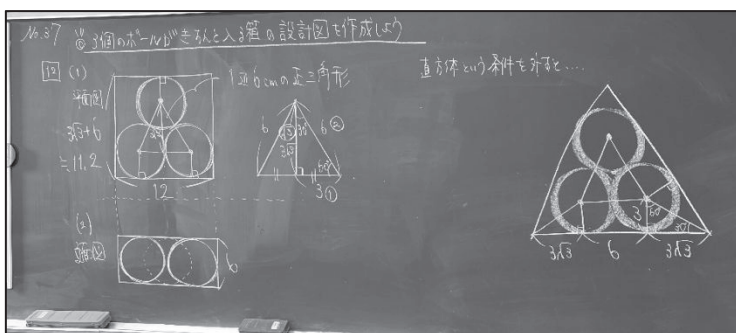 No.37 ◎3個のボールがきちんと入る箱の設計図を作成しよう
問 (1)
平面図
3√3+6
≒11.2
12
1辺6cmの正三角形
6
√3
30°
6②
3√3
60°
3①
(2)
立面図
6
直方体という条件を外すと....
3
60
30°
3√3
6
3√3